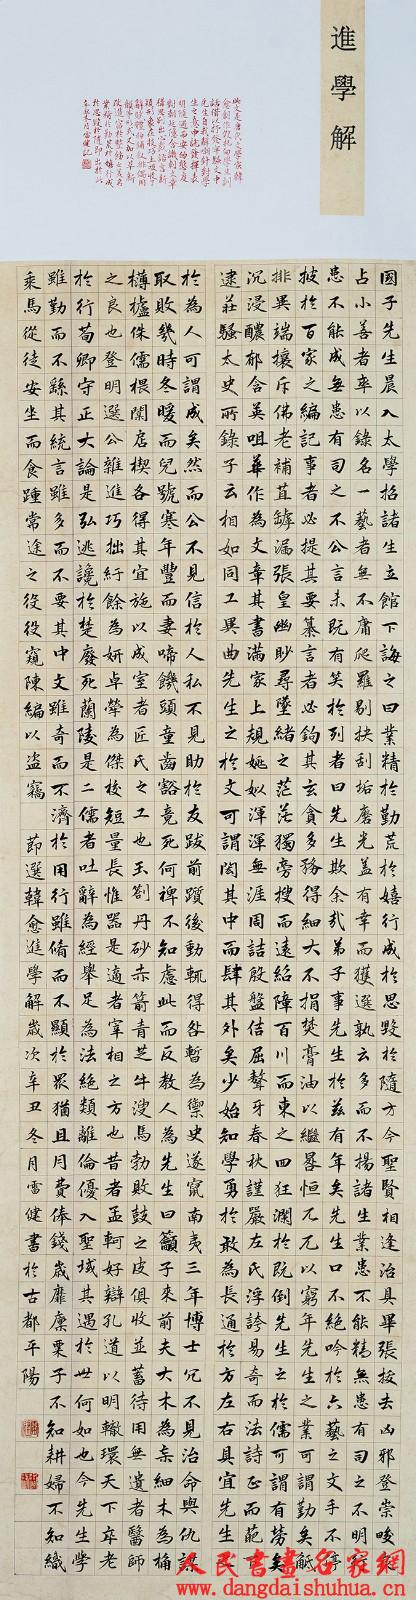 進學解
此文是唐代文學家韓
愈創作
國子先生晨入太學招諸生立館下誨之曰業精於勤荒於嬉行成於思毀於隨方今聖賢相逢治具畢張拔去凶邪登崇畯良
占小善者率以錄名一藝者無不庸爬羅剔抉刮垢磨光蓋有幸而獲選孰云多而不揚諸生業患不能精無患有司之不明行
患不能成無患有司之不公言未既有笑於列者曰先生欺余哉弟子事先生於茲有年矣先生口不絕吟於六藝之文手不停
披於百家之編記事者必提其要纂言者必鉤其玄貪多務得細大不捐焚膏油以繼晷恒兀兀以窮年先生之業可謂勤矣觝
排異端攘斥佛老補苴罅漏張皇幽眇尋墜緒之茫茫獨旁搜而遠紹障百川而東之回狂瀾於既倒先生之於儒可謂有勞矣
沉浸醲郁含英咀華作為文章其書滿家上規姚姒渾渾無涯周誥殷盤佶屈聱牙春秋謹嚴左氏浮誇易奇而法詩正而葩下
逮莊騷太史所錄子云相如同工異曲先生之於文可謂閎其中而肆其外矣少始知學勇於敢為長通於方左右具宜先生之
於為人可謂成矣然而公不見信於人私不見助於友跋前躓後動輒得咎暫為禦史遂竄南夷三年博士冗不見治命與仇謀
取敗幾時冬暖而兒號寒年豐而妻啼饑頭童齒豁竟死何裨不知慮此而反教人為先生曰籲子來前夫大木為杗細木為桷
欂櫨侏儒椳闑扂楔各得其宜施以成室者匠氏之工也玉劄丹砂赤箭青芝牛溲馬勃敗鼓之皮俱收並蓄待用無遺者醫師
之良也登明選公雜進巧拙紆餘為妍卓犖為傑校短量長惟器是適者宰相之方也昔者孟軻好辯孔道以明轍環天下卒老
於行荀卿守正大論是弘逃讒於楚廢死蘭陵是二儒者吐辭為經舉足為法絕類離倫優入聖域其遇於世何如也今先生學
雖勤而不繇其統言雖多而不要其中文雖奇而不濟於用行雖脩而不顯於眾猶且月費俸錢歲靡廩粟子不知耕婦不知織
乘馬從徒安坐而食踵常途之役役窺陳編以盜竊 節選韓愈進學解歲次辛丑冬月雷健書於古都平陽
人民書畫名家網
www.dangdaishuhua.cn